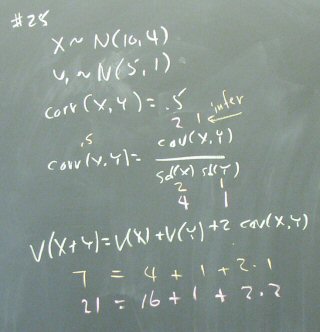 #28
X ~ N(10,4)
Y ~ N(5,1)
corr(X,Y) = .5
2 1 ← infer
.5
corr(X,Y) = cov(X,Y)
sd(X) sd(Y)
2 1
4 1
V(X+Y) = V(X) + V(Y) + 2 cov(X,Y)
7 = 4 + 1 + 2·1
21 = 16 + 1 + 2·2